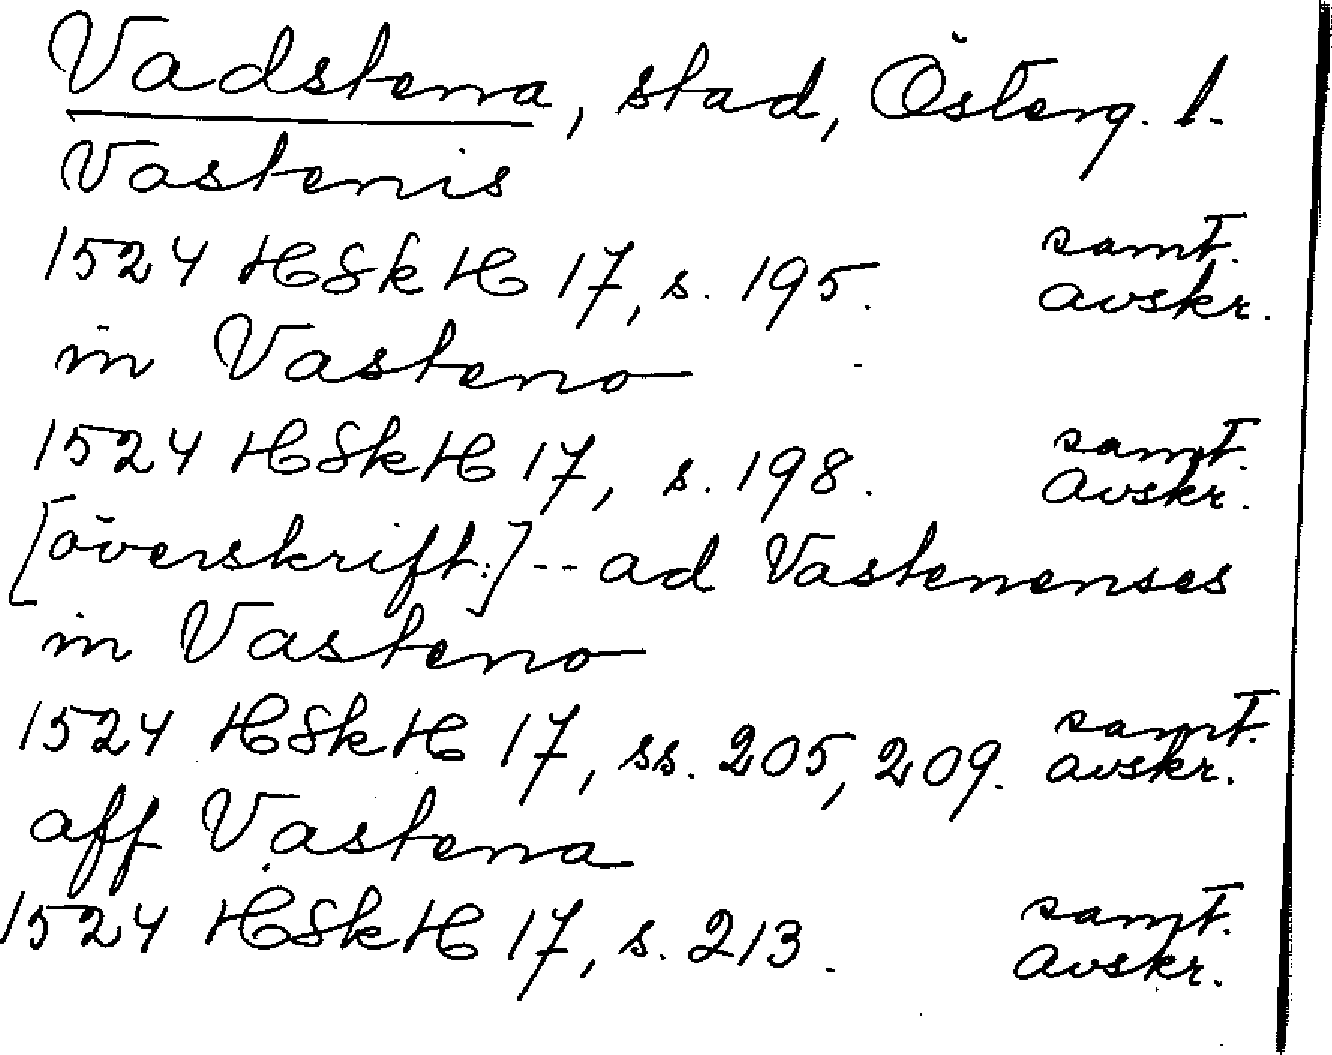 Vadstena, stad, Österg. l.
Vastenis
1524 HSkH 17, s. 195. samt. avskr.
in Vasteno
1524 HSkH 17, s. 198. samt. avskr.
[överskrift:] -- ad Vastenenses
in Vasteno
1524 HSkH 17, ss. 205, 209. samt. avskr.
aff Vastena
1524 HSkH 17, s. 213. samt. avskr.